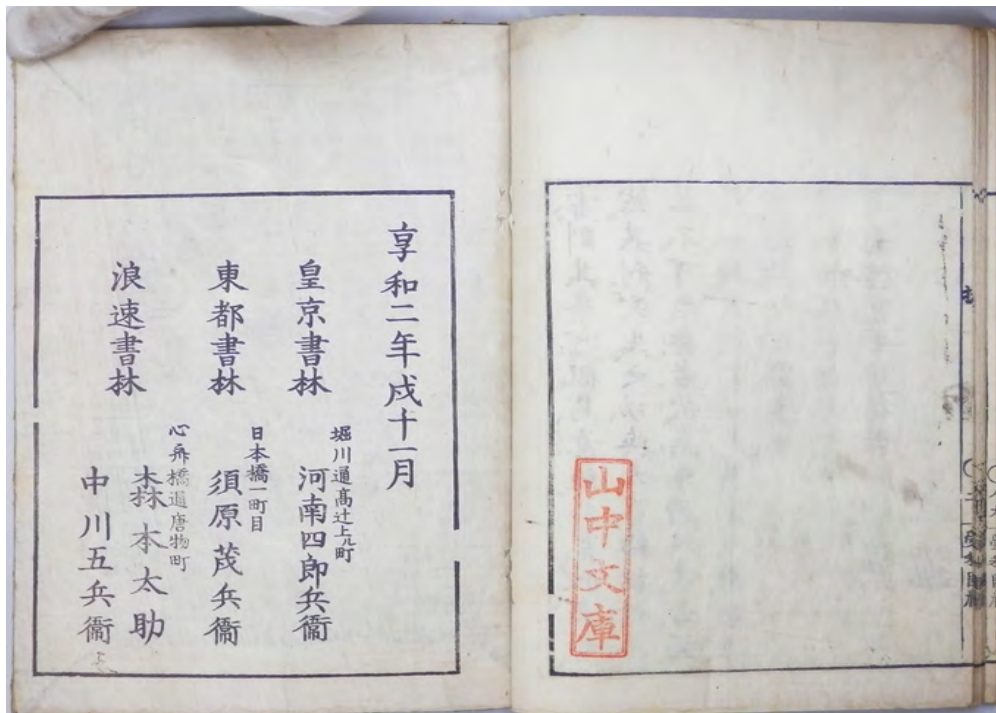 山中文庫
享和二年戌十一月
皇京書林
堀川通高辻上ル町
河南四郎兵衞
東都書林
日本橋一町目
須原茂兵衞
浪速書林
心斎橋通唐物町
森本太助
中川五兵衞